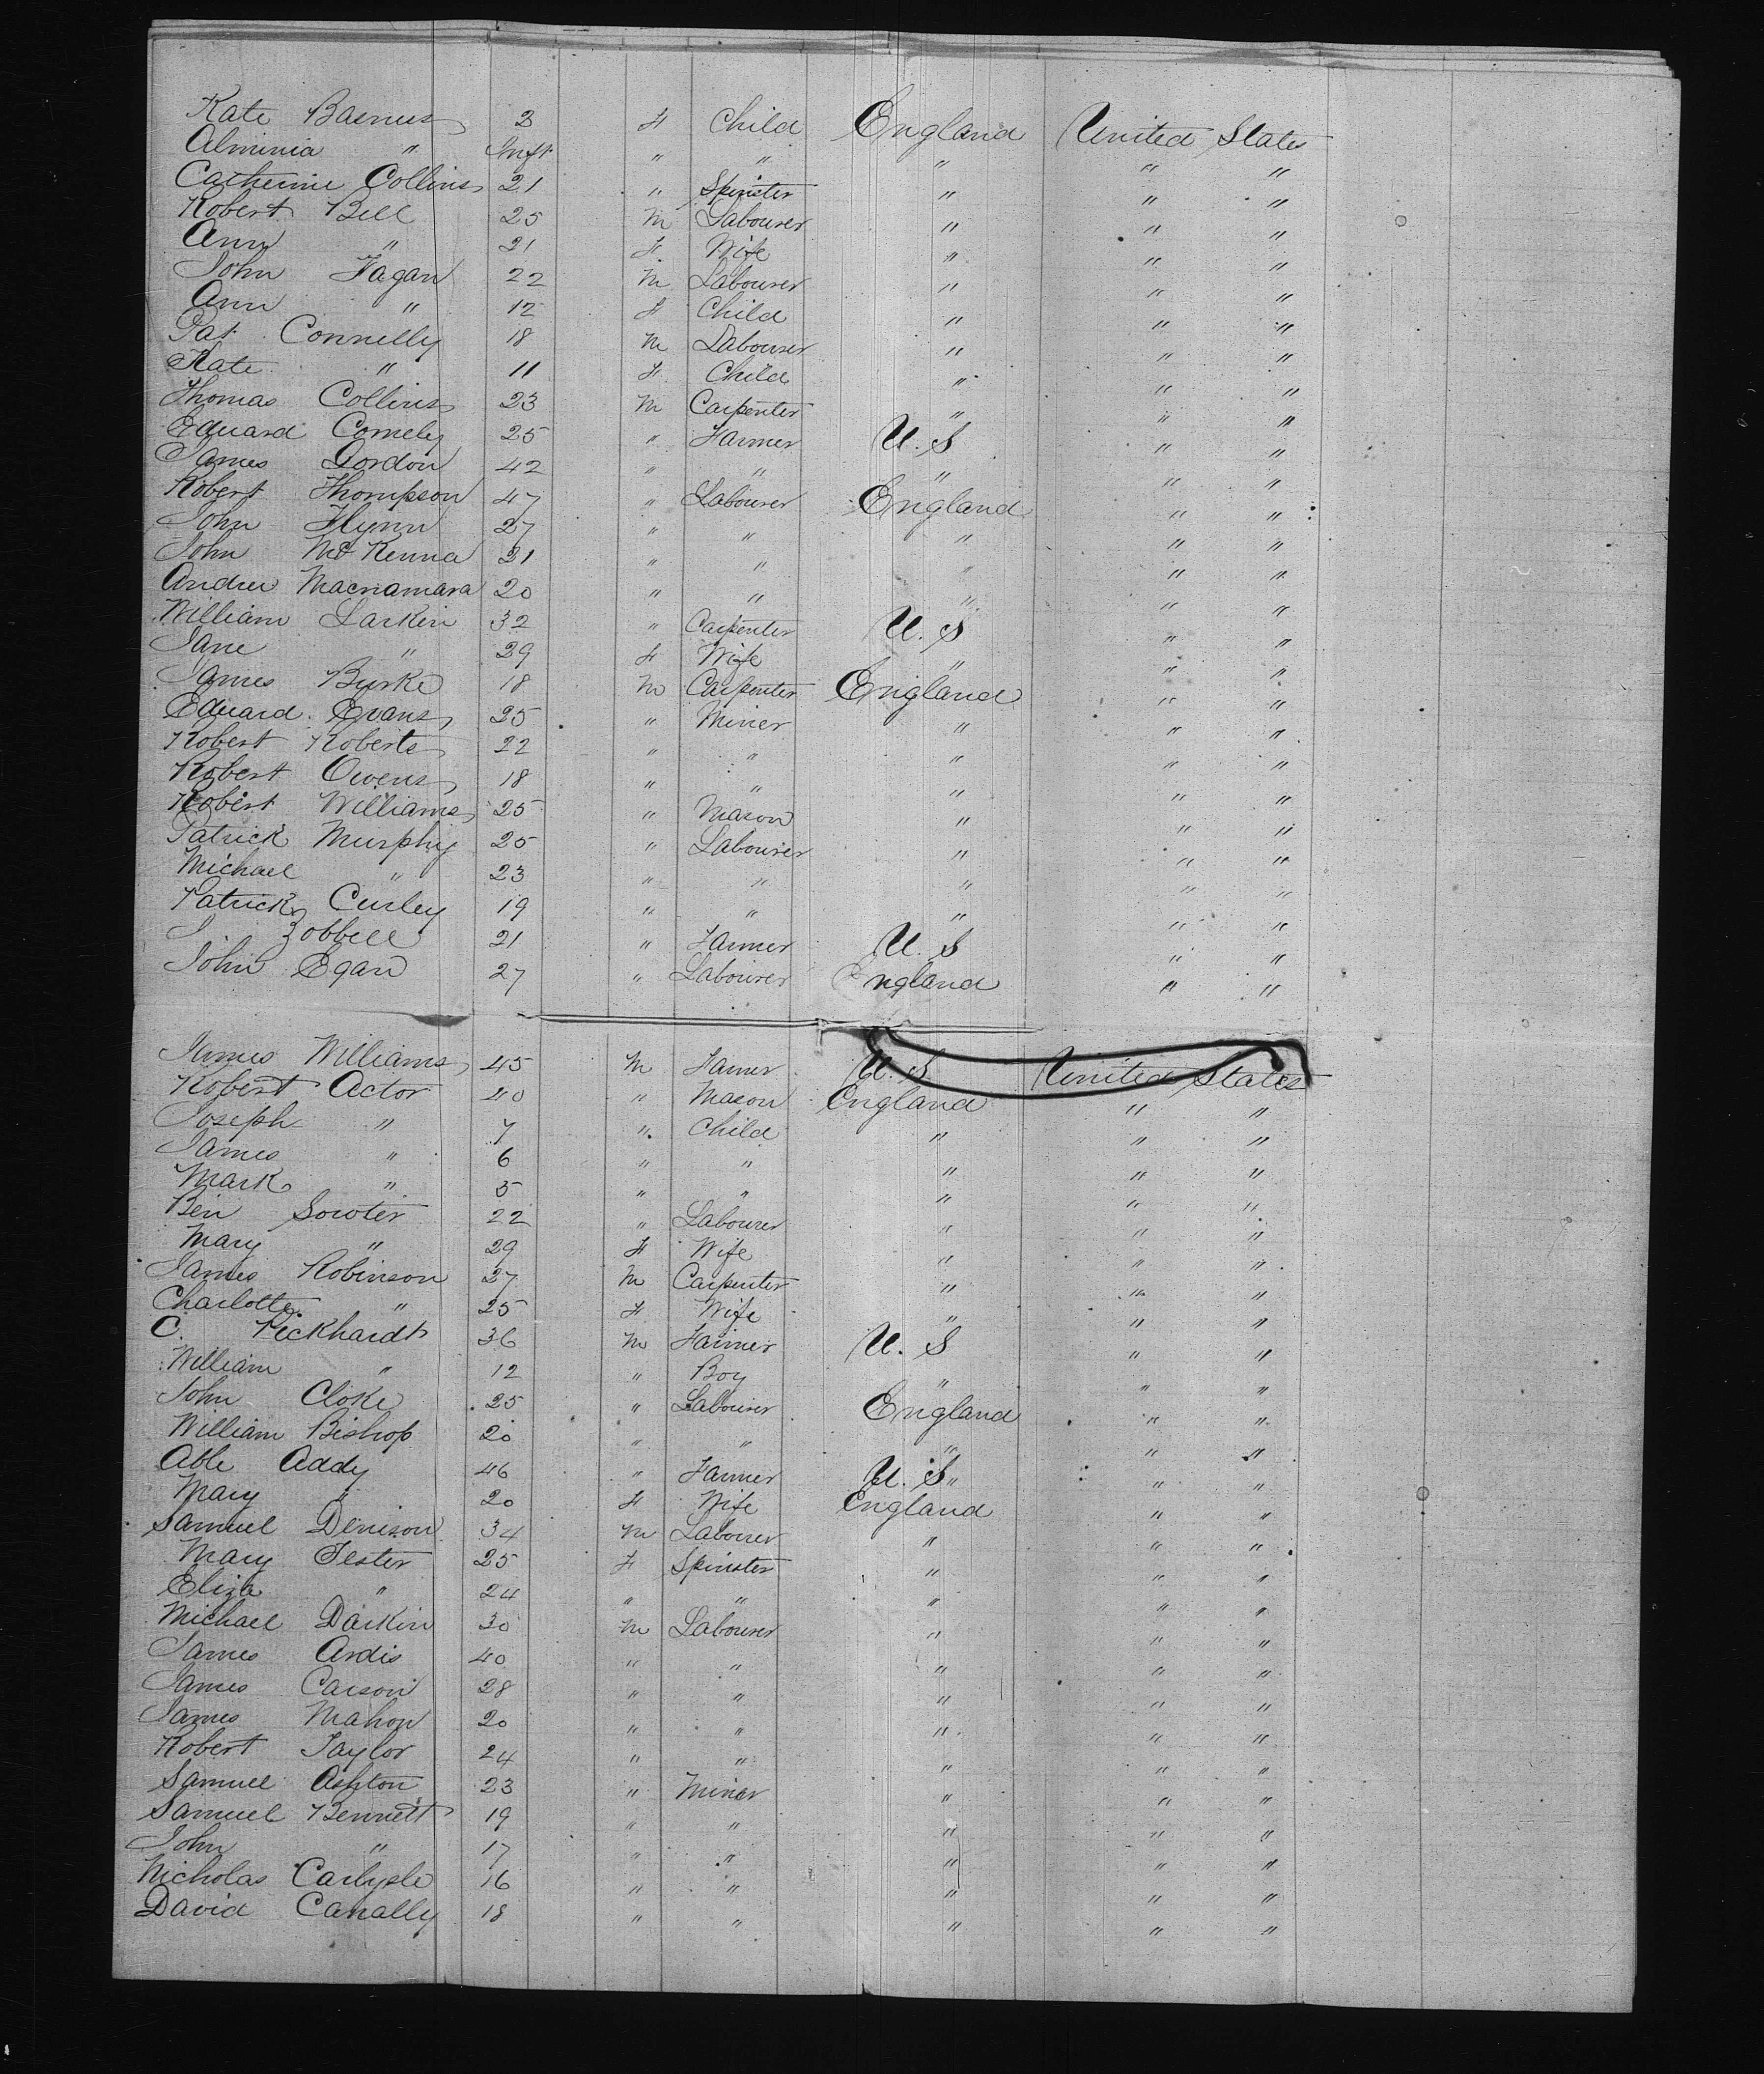 Kate Basnus 2 F Child England United States
Alminia " Inft " " " " "
Catherine Collins 21 " Spinster " " "
Robert Bell 25 M Labourer " " "
Ann " 21 F. Wife " " "
John Fagan 22 M Labourer " " "
Ann " 12 F Child " " "
Pat Connelly 18 M Labourer " " "
Kate " 11 F Child " " "
Thomas Collins 23 M Carpenter " " "
Eduard Comely 25 " Farmer U. S " "
James Gordon 42 " " " " "
Robert Thompson 47 " Labourer England " "
John Flynn 27 " " " " "
John McKenna 21 " " " " "
Andrew Macnamara 20 " " " " "
William Larkin 32 " Carpenter U. S " "
Jane " 29 F Wife " " "
James Burke 18 M Carpenter England " "
Eduard Evans 25 " Miner " " "
Robert Roberts 22 " " " " "
Robert Owens 18 " " " " "
Robert Williams 25 " Mason " " "
Patrick Murphy 25 " Labourer " " "
Michael " 23 " " " " "
Patrick Curley 19 " " " " "
J. Zobbell 21 " Farmer U. S " "
John Egan 27 " Labourer England " "
James Williams 45 M Farmer U. S United States
Robert Actor 40 " Mason England " "
Joseph " 7 " Child " " "
James " 6 " " " " "
Mark " 5 " " " " "
Ben Sowter 22 " Labourer " " "
Mary " 29 F Wife " " "
James Robinson 27 M Carpenter " " "
Charlotte " 25 F Wife " " "
C. Pickhardt 36 M Farmer U. S " "
William " 12 " Boy " " "
John Cloke 25 " Labourer England " "
William Bishop 20 " " " " "
Able Addy 46 " Farmer U. S " "
Mary " 20 F Wife England " "
Samuel Denison 34 M Labourer " " "
Mary Tester 25 F Spinster " " "
Eliza " 24 " " " " "
Michael Darkin 30 M Labourer " " "
James Ardis 40 " " " " "
James Carson 28 " " " " "
James Mahon 20 " " " " "
Robert Taylor 24 " " " " "
Samuel Ashton 23 " Miner " " "
Samuel Bennett 19 " " " " "
John " 17 " " " " "
Nicholas Carlysle 16 " " " " "
David Canally 18 " " " " "